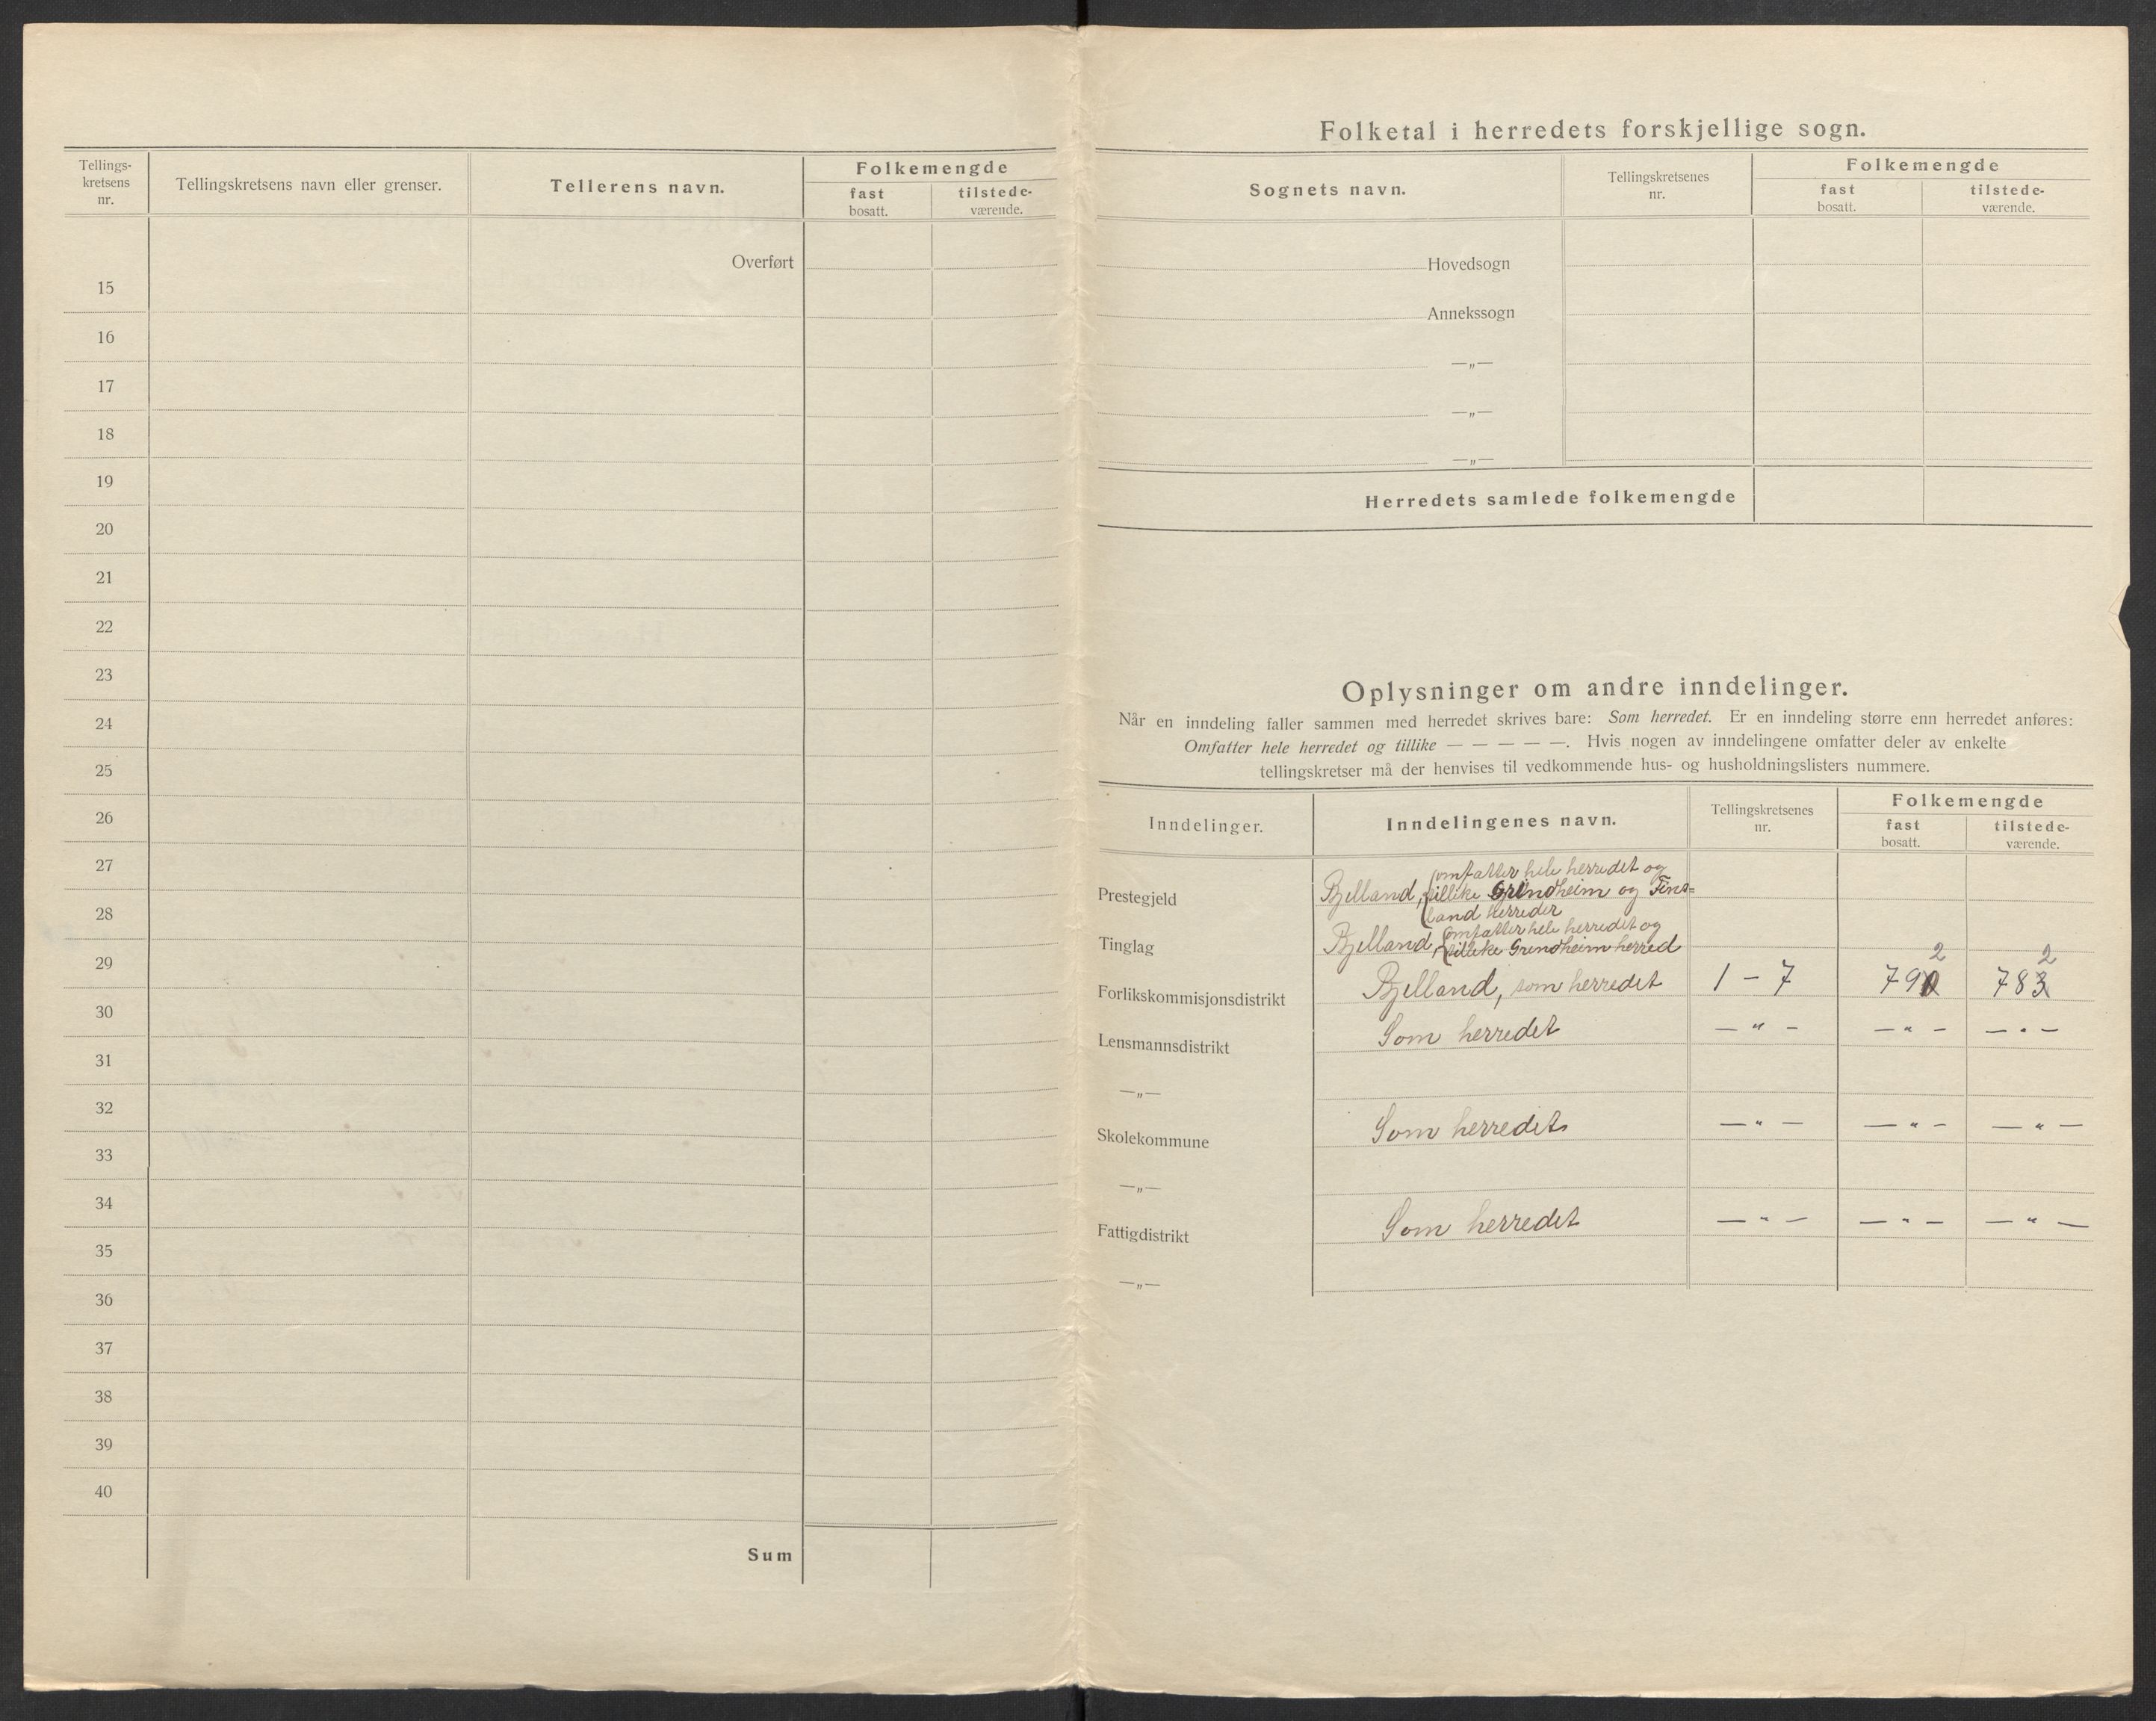 Tellings-
kretsens
nr.
Tellingskretsens navn eller grenser.
Tellerens navn.
Folkemengde
fast
bosatt.
tilstede-
værende.
Overført
15
16
17
18
19
20
21
22
23
24
25
26
27
28
29
30
31
32
33
34
35
36
37
38
39
40
Sum
Folketal i herredets forskjellige sogn.
Sognets navn.
Tellingskretsenes
nr.
Folkemengde
fast
bosatt.
tilstede-
værende.
Hovedsogn
Annekssogn
—„—
—„—
—„—
Herredets samlede folkemengde
Oplysninger om andre inndelinger.
Når en inndeling faller sammen med herredet skrives bare: Som herredet. Er en inndeling større enn herredet anføres:
Omfatter hele herredet og tillike — — — — —. Hvis nogen av inndelingene omfatter deler av enkelte
tellingskretser må der henvises til vedkommende hus- og husholdningslisters nummere.
Inndelinger.
Inndelingenes navn.
Tellingskretsenes
nr.
Folkemengde
fast
bosatt.
tilstede-
værende.
Prestegjeld Bjelland, (omfatter hele herredet og
tillike Grindheim og Fins=
land herreder
Tinglag Bjelland, (omfatter hele herredet og
tillike Grendheim herred
2 2
Forlikskommisjonsdistrikt Bjelland, som herredet 1 – 7 790 783
Lensmannsdistrikt Som herredet — „ — — „ — — „ —
—„—
Skolekommune Som herredet — „ — — „ — — „ —
—„—
Fattigdistrikt Som herredet — „ — — „ — — „ —
—„—